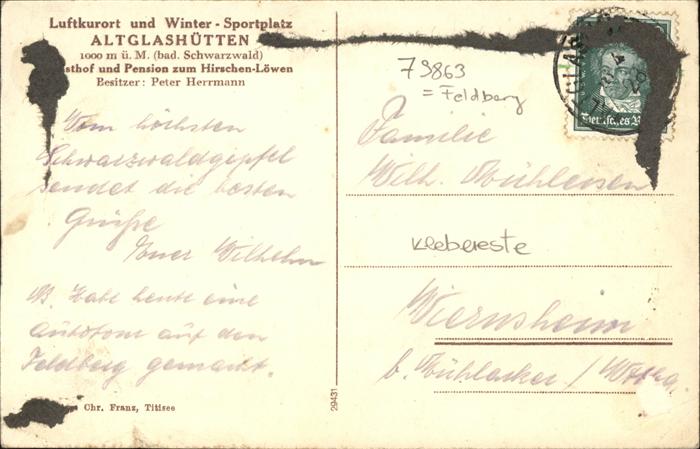 Luftkurort und Winter-Sportplatz
ALTGLASHÜTTEN
1000 m ü. M. (bad. Schwarzwald)
sthof und Pension zum Hirschen-Löwen
Besitzer: Peter Herrmann
Vom höchsten
Schwarzwaldgipfel
sendet die besten
Grüße
Euer Wilhelm
NB. Habe heute eine
Autotour auf den
Feldberg gemacht.
Chr. Franz, Titisee
29431
79863
= Feldberg
Familie
Wilh. Mühleisen
Klebereste
Wiernsheim
b. Mühlacker /
Deutsches R